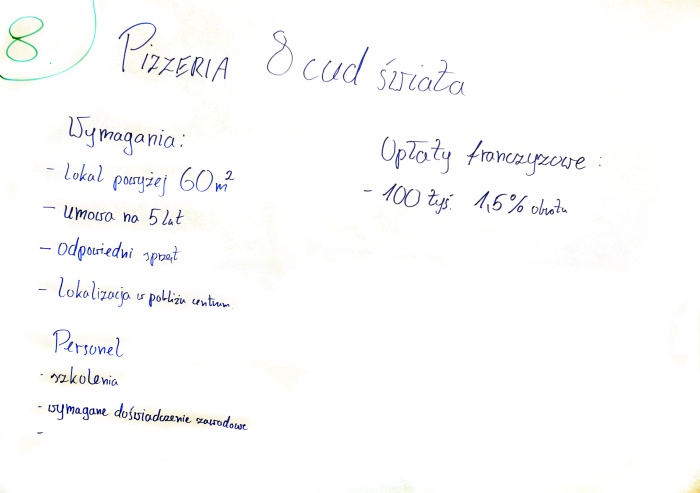 8.
Pizzeria 8 cud świata
Wymagania:
- lokal powyżej 60 m²
- umowa na 5 lat
- odpowiedni sprzęt
- lokalizacja w pobliżu centrum
Personel
- szkolenia
- wymagane doświadczenie zawodowe
-
Opłaty franczyzowe:
- 100 tyś. 1,5% obrotu